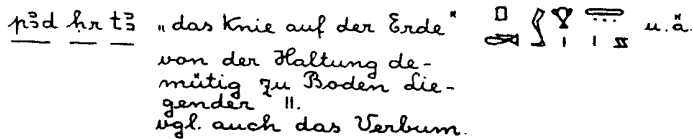 pꜣd ḥr tꜣ „das Knie auf der Erde“ u. ä.
von der Haltung de-
mütig zu Boden Lie-
gender II.
vgl. auch das Verbum.